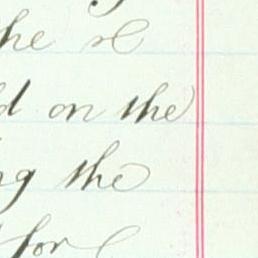 he
d on the
ng the
for